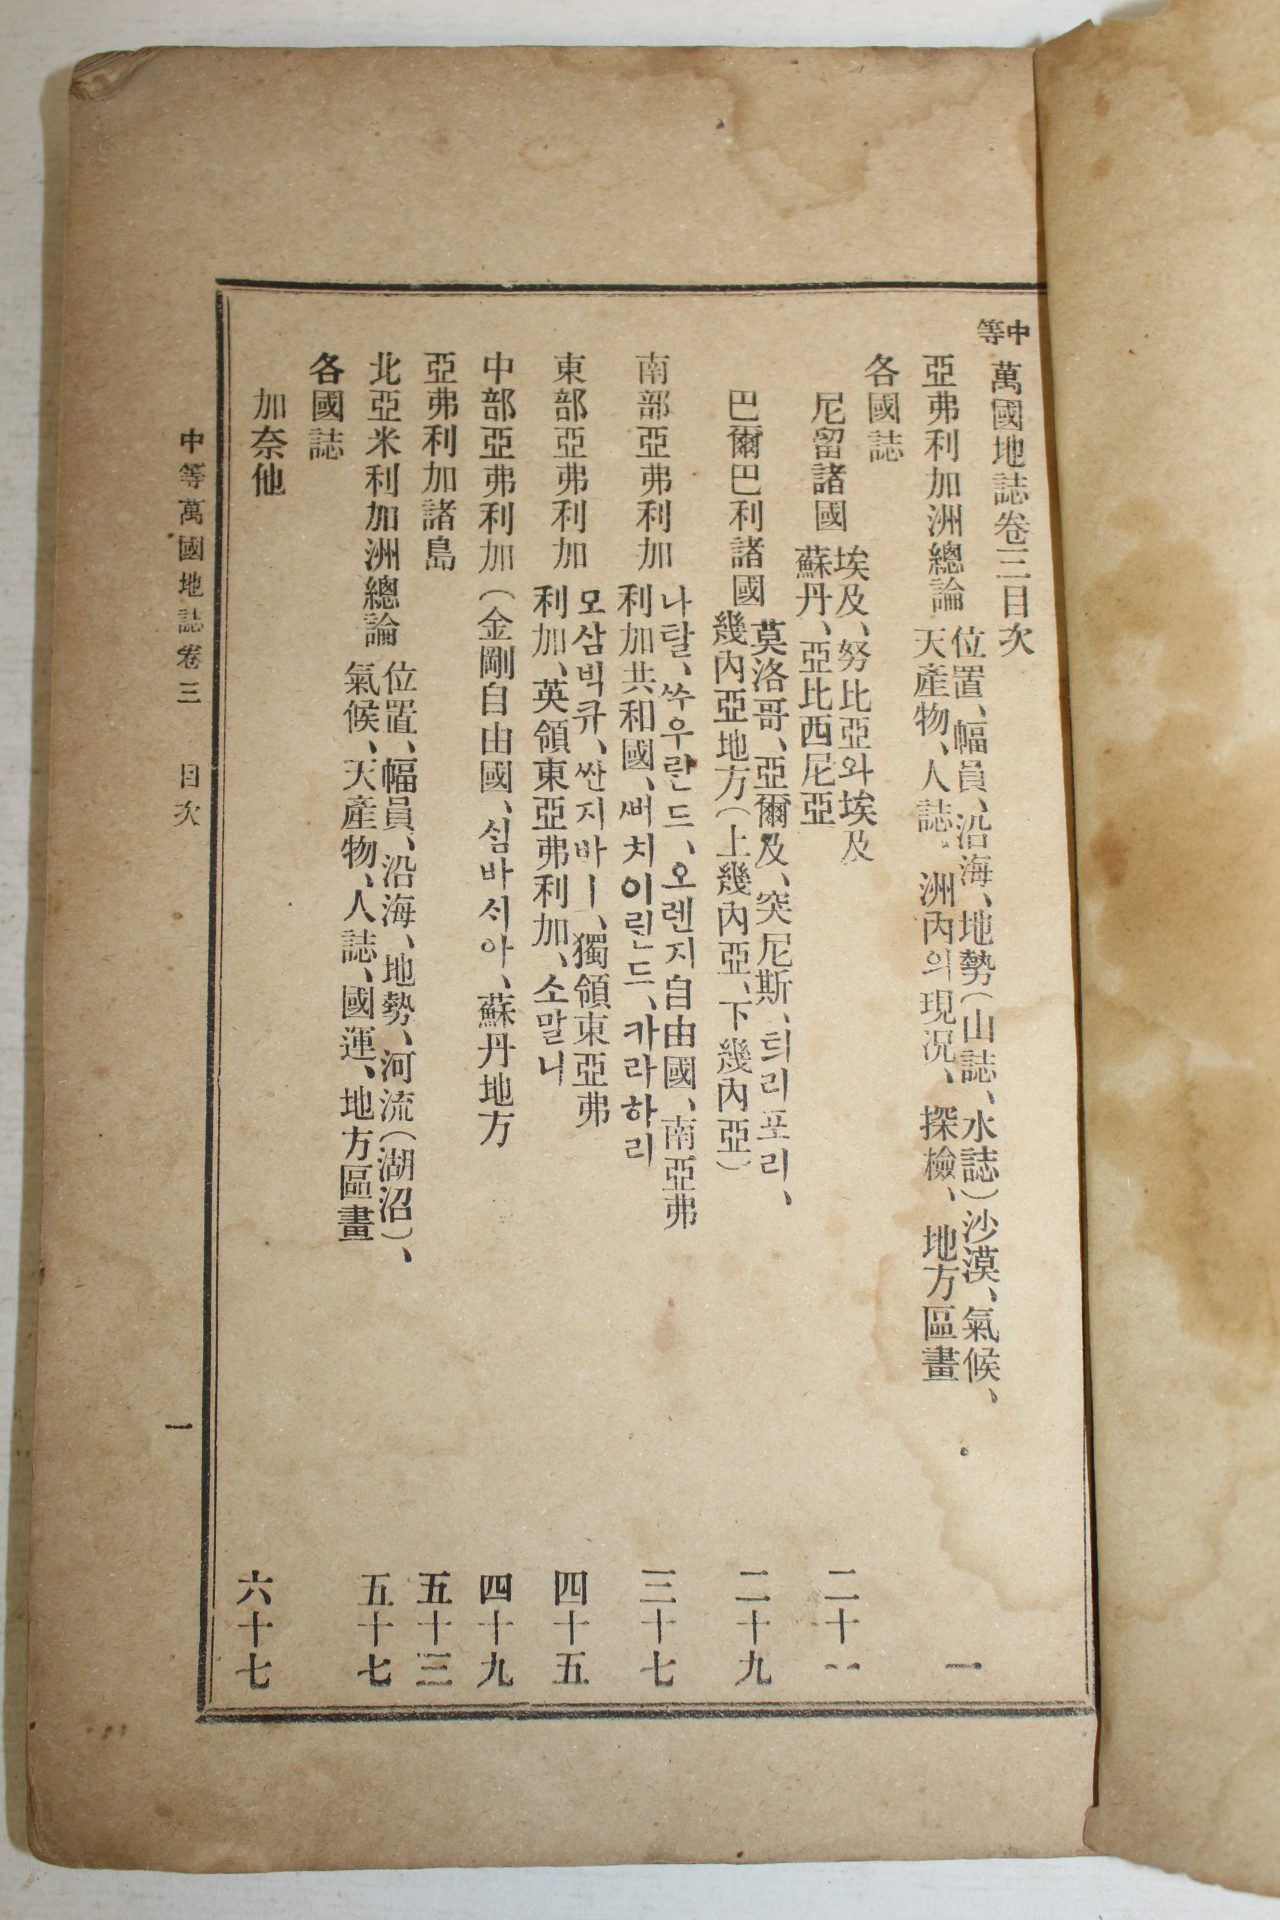 中等 萬國地誌卷三目次
亞弗利加洲總論 位置、幅員、沿海、地勢(山誌、水誌)沙漠、氣候、
天產物、人誌、洲內의現況、探檢、地方區畫 一
各國誌
尼留諸國 埃及、努比亞와埃及
蘇丹、亞比西尼亞 二十一
巴爾巴利諸國 莫洛哥、亞爾及、突尼斯、틔리포리、
幾內亞地方(上幾內亞、下幾內亞) 二十九
南部亞弗利加 나탈、쑤우란드、오렌지自由國、南亞弗
利加共和國、뻐치이린드、카라하리 三十七
東部亞弗利加 모삼빅큐、싼지바ㅣ、獨領東亞弗
利加、英領東亞弗利加、소말니 四十五
中部亞弗利加 (金剛自由國、심바식아、蘇丹地方 四十九
亞弗利加諸島 五十三
北亞米利加洲總論 位置、幅員、沿海、地勢、河流(湖沼)、
氣候、天產物、人誌、國運、地方區畫 五十七
各國誌
加奈他 六十七
中等萬國地誌卷三 目次 一